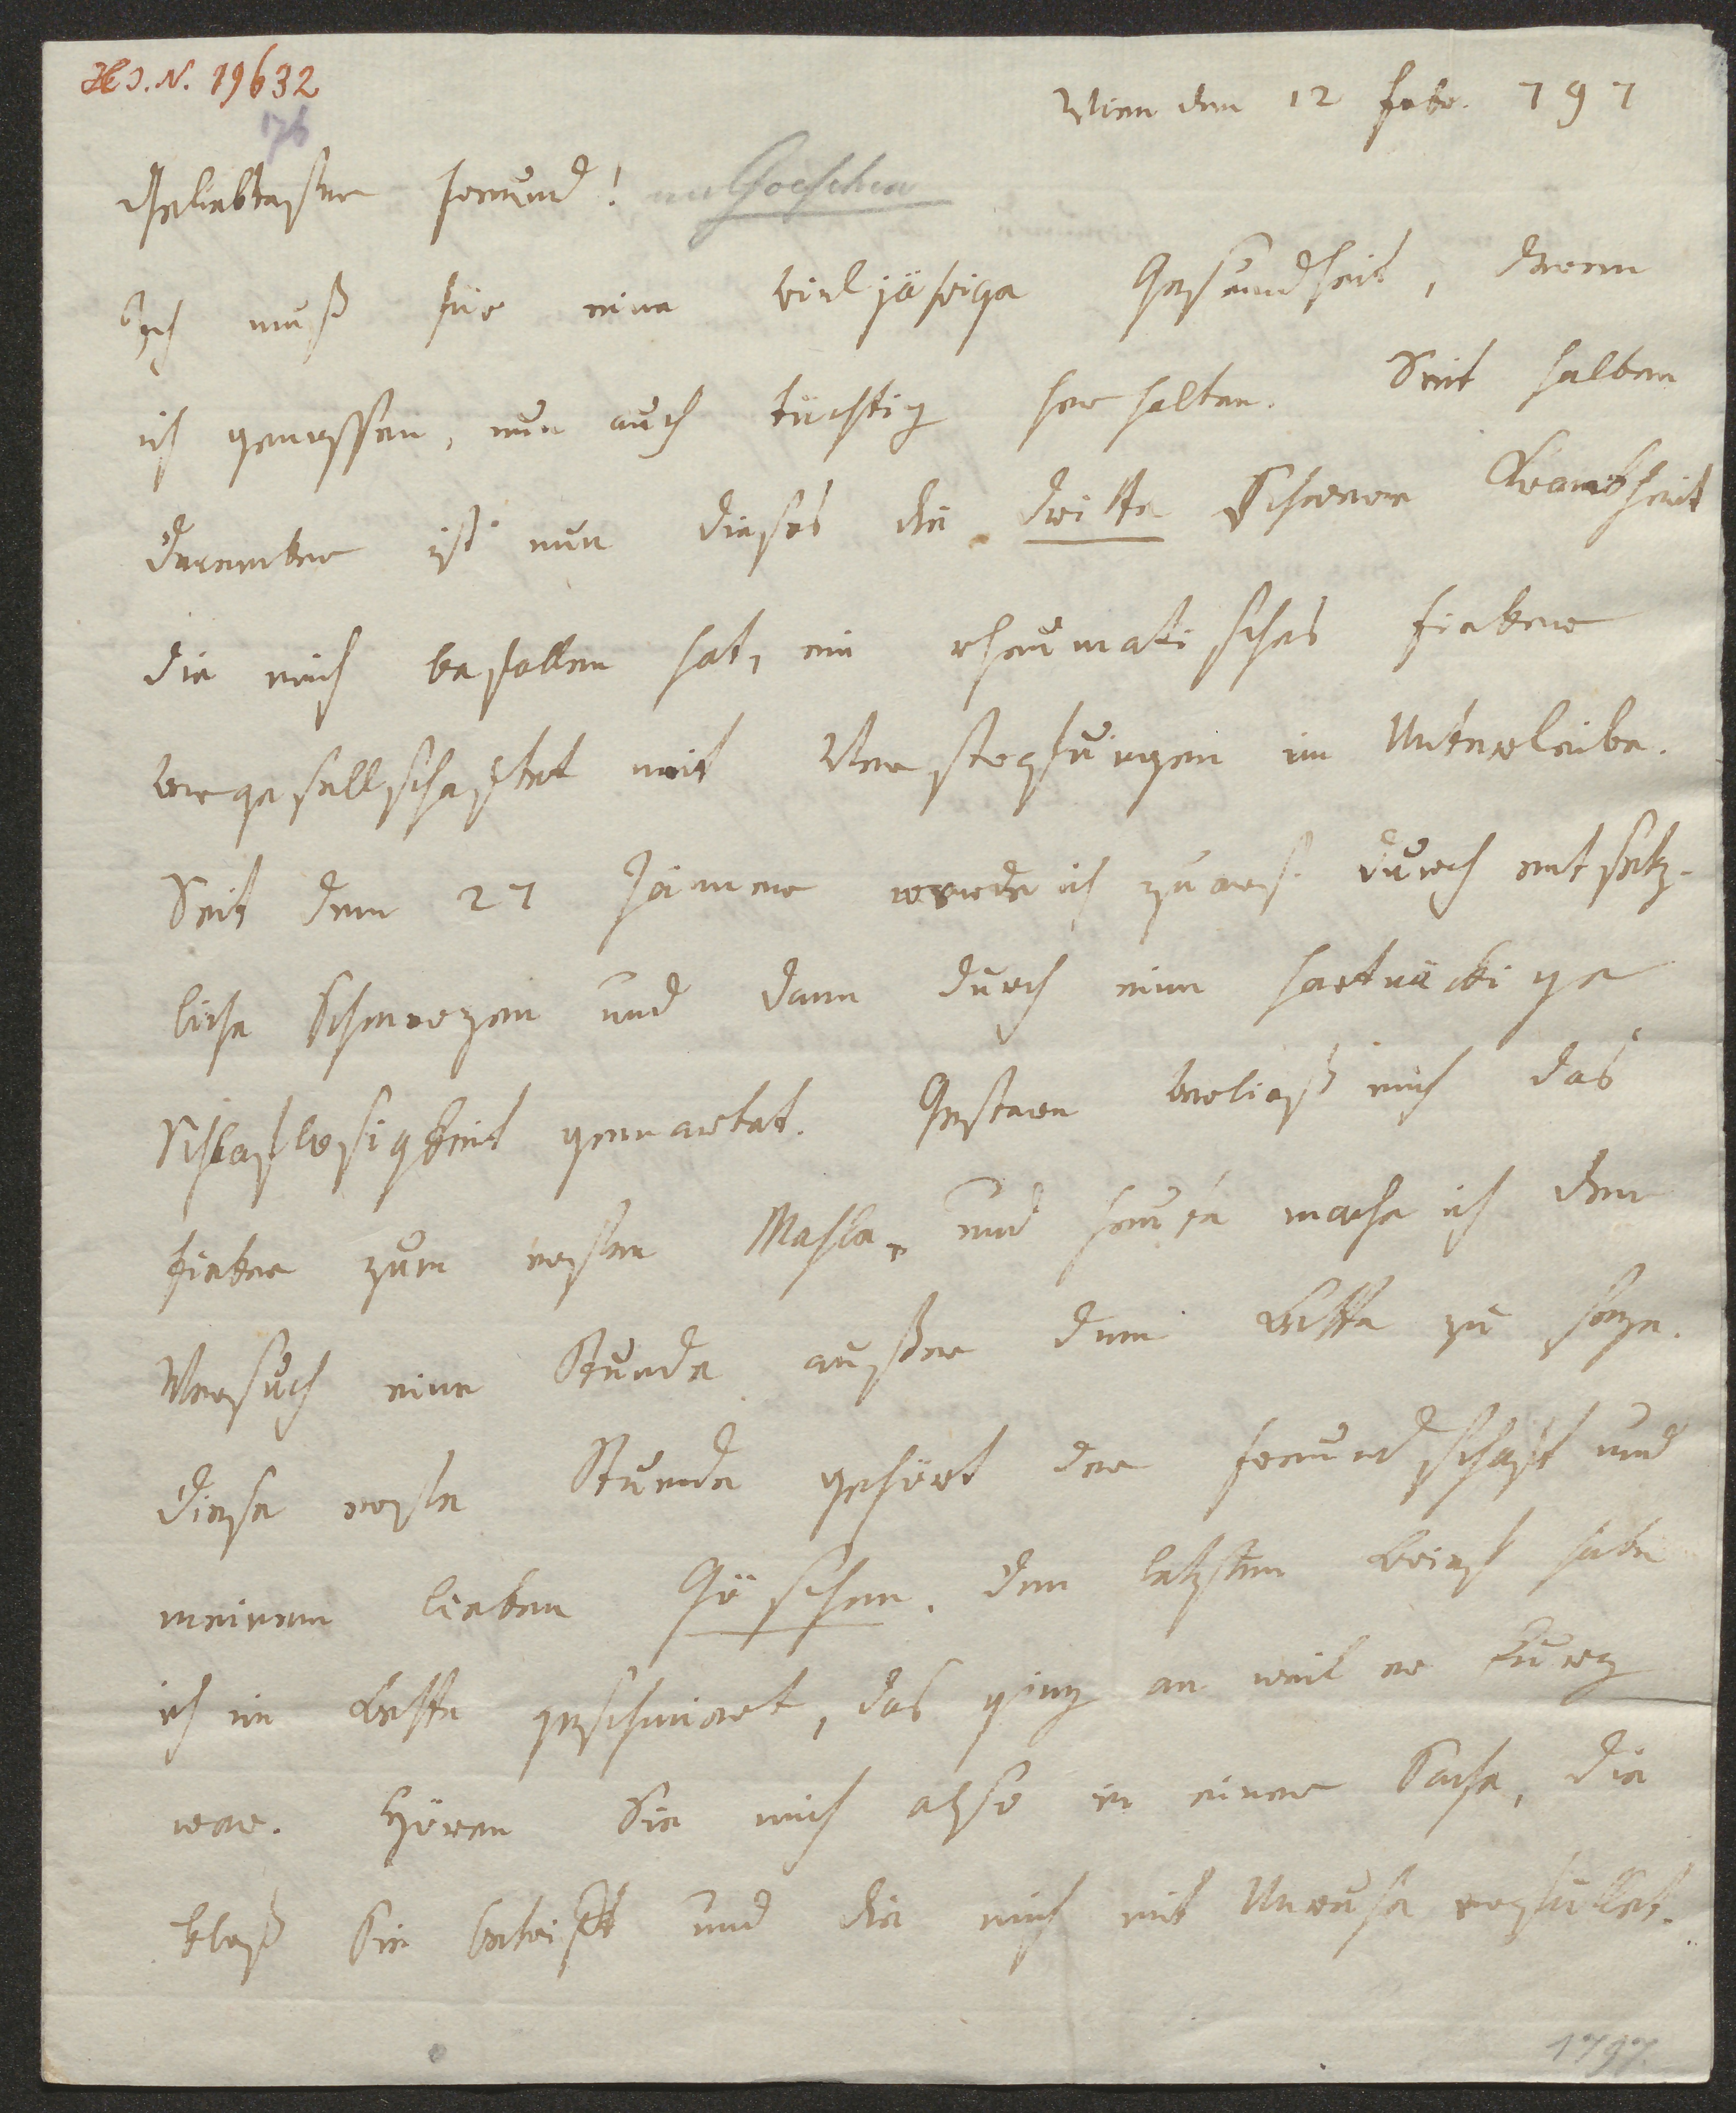 H. I. N. 19632
176
Wien den 12 Febr. 797
Geliebtester Freund! an Goeschen
Ich muß für eine vieljährige Gesundheit, deren
ich genossen, nun auch tüchtig herhalten. Seit halben
December ist nun dieses die dritte schwere Krankheit
die mich befallen hat, ein rheumatisches Fieber
vergesellschaftet mit Verstopfungen im Unterleibe.
Seit dem 27 Jänner werde ich zuerst durch entsetz-
liche Schmerzen und dann durch eine hartnäckige
Schlaflosigkeit gemartet. Gestern verließ mich das
Fieber zum ersten Mahle, und heute mache ich den
Versuch eine Stunde außer dem Bette zu seyn.
Diese erste Stunde gehört der Freundschaft und
meinem lieben Göschen. Den letzten Brief habe
ich im Bette geschmiert, das ging an weil er kurz
war. Hören Sie mich also in einer Sache, die
bloß Sie betrifft und die mich mit Unruhe erfüllet.
1797.